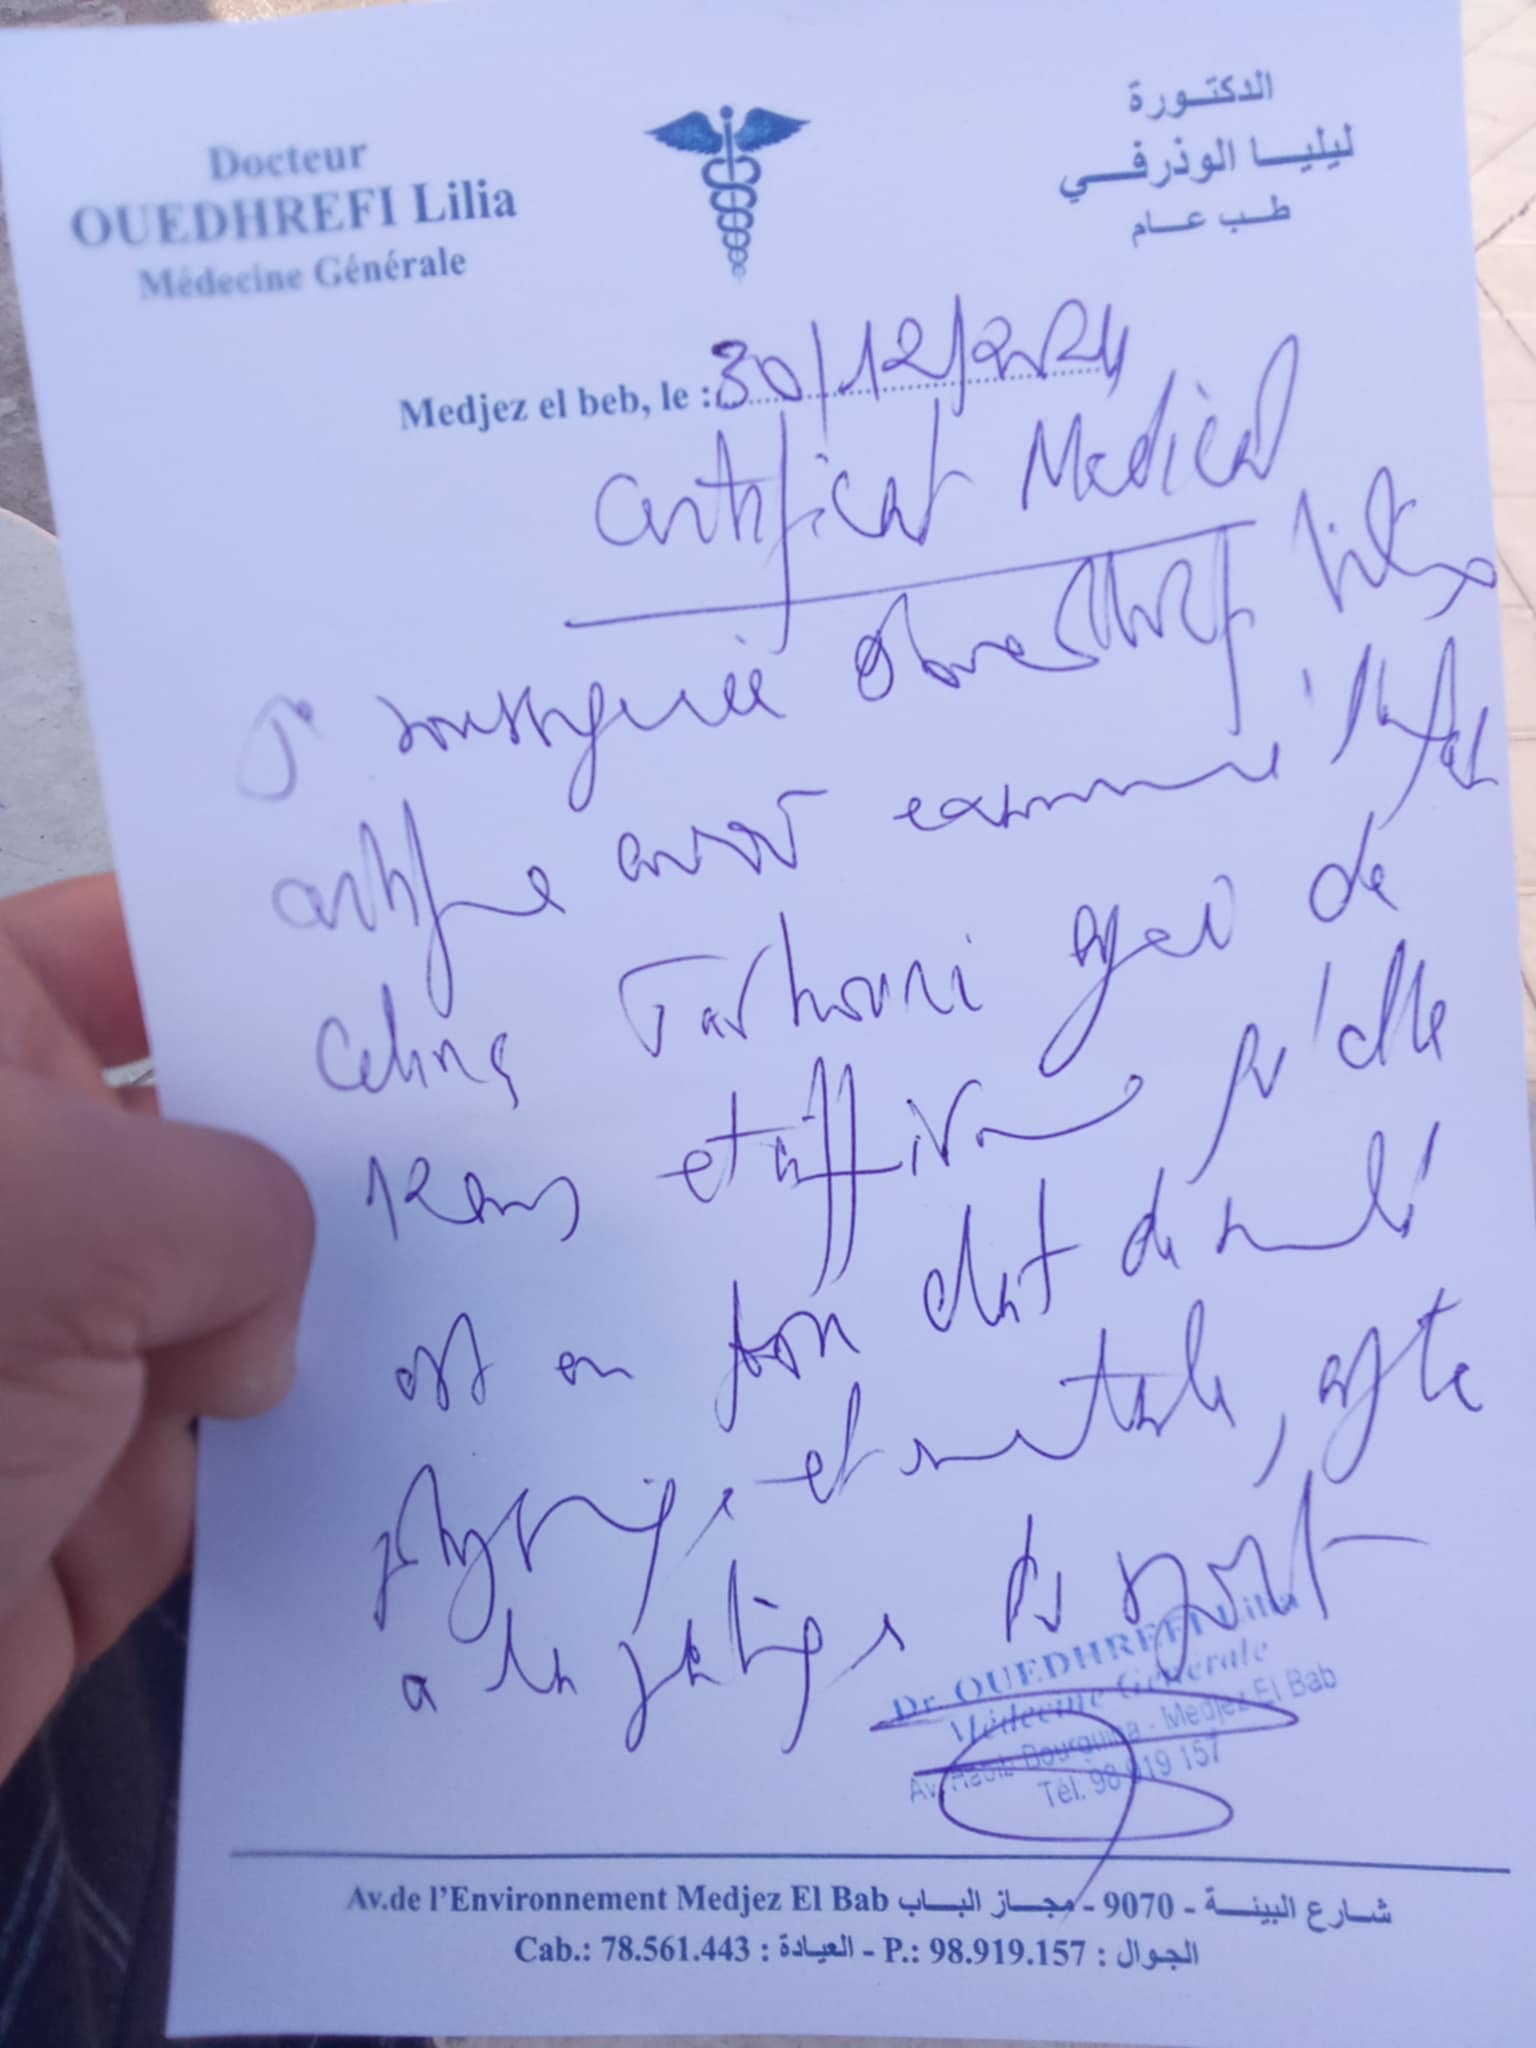 Docteur
OUEDHREFI Lilia
Médecine Générale
الدكتورة
ليليا الوذرفي
طب عام
Medjez el beb, le : 30/12/2024
Certificat Medical
Je soussignée Ouedhrefi Lilia
certifie avoir examiné l'enfant
Celine Tarhouni agée de
12 ans et affirme qu'elle
est en bon état de santé
physique et mentale, apte
a la pratique du sport
Dr. OUEDHREFI Lilia
Médecine Générale
Av. Habib Bourguiba - Medjez El Bab
Tél. 98 919 157
Av.de l'Environnement Medjez El Bab شارع البيئة - 9070 - مجاز الباب
Cab.: 78.561.443 : العيادة - P.: 98.919.157 : الجوال